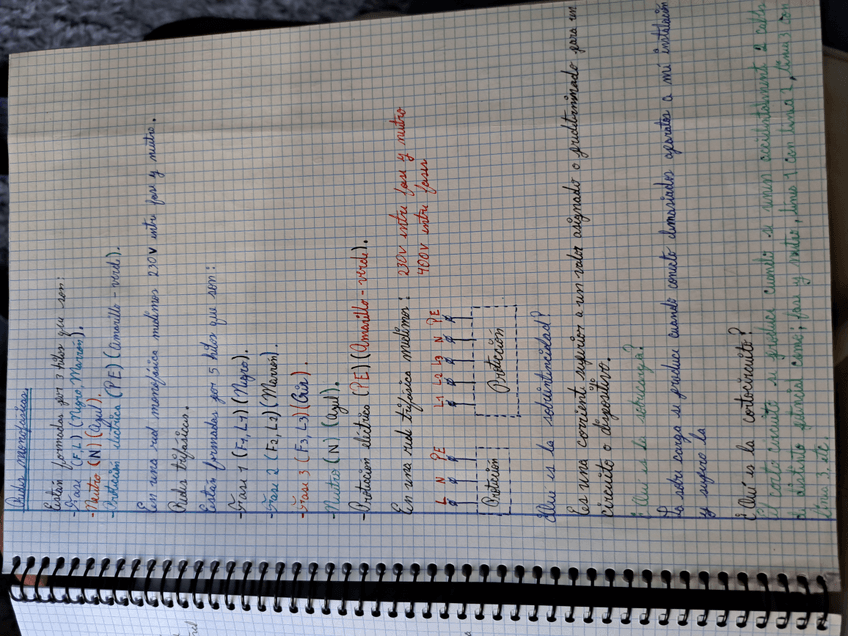 Redes monofásicas.
Están formadas por 3 hilos que son:
-Fase (F, L) (Negro Marrón).
-Neutro (N) (Azul).
-Protección eléctrica (PE) (Amarillo-verde).
En una red monofásica medimos 230V entre fase y neutro.
Redes trifásicas.
Están formadas por 5 hilos que son:
-Fase 1 (F1, L1) (Negro).
-Fase 2 (F2, L2) (Marrón).
-Fase 3 (F3, L3) (Gris).
-Neutro (N) (Azul).
-Protección eléctrica (PE) (Amarillo-verde).
En una red trifásica medimos: 230V entre fase y neutro
400V entre fases
L N PE L1 L2 L3 N PE
Protección Protección
¿Qué es la sobreintensidad?
Es una corriente superior a un valor asignado o predeterminado para un
circuito o dispositivo.
¿Qué es la sobrecarga?
La sobrecarga se produce cuando conecto demasiados aparatos a mi instalación
y supero la
¿Qué es la cortocircuito?
El cortocircuito se produce cuando se unen accidentalmente 2 cables
de distinto potencial como; fase y neutro, línea 1 con línea 2, línea 3 con
línea 2, etc.